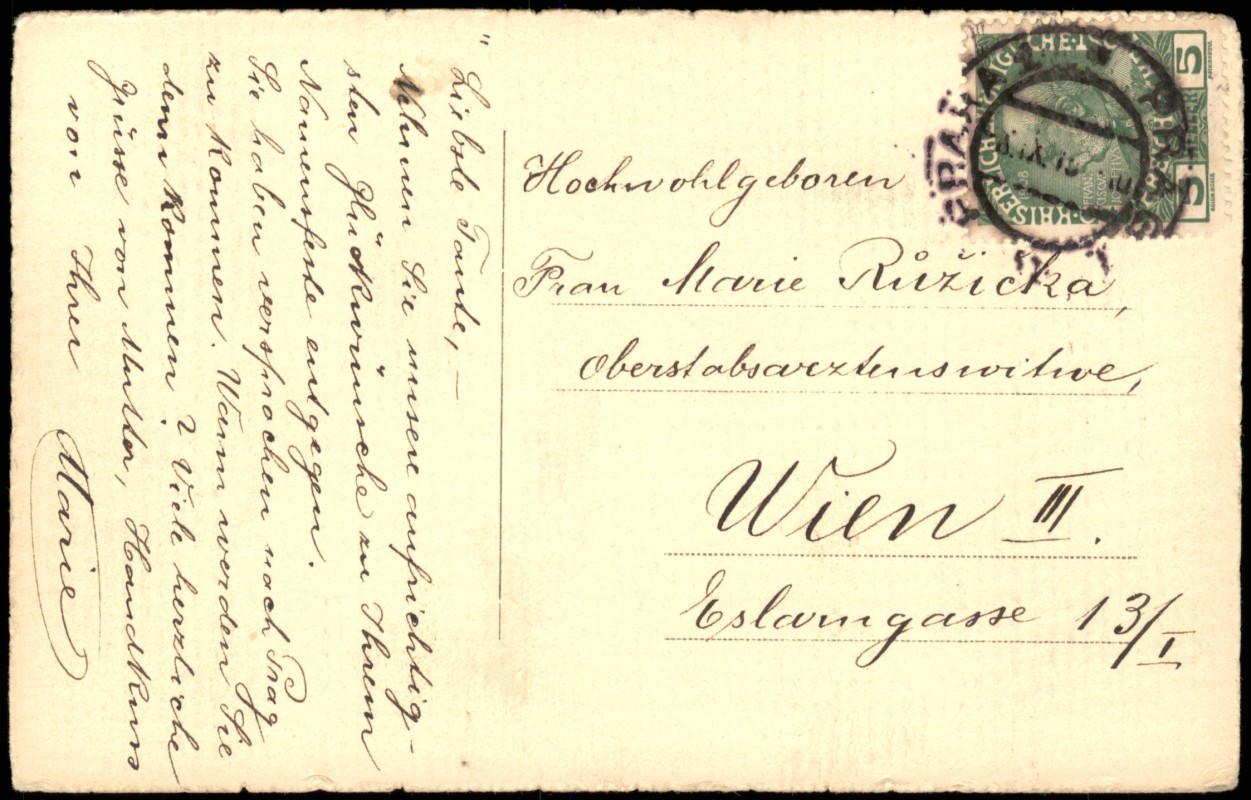 Liebste Tante, —
Nehmen Sie unsere aufrichtig-
sten Glückwünsche zu Ihrem
Namensfeste entgegen.
Sie haben versprochen nach Prag
zu kommen. Wann werden Sie
denn kommen? Viele herzliche
Grüsse von Mutter, Handkuss
von Ihrer
Marie
Hochwohlgeboren
Frau Marie Růžička,
Oberstabsarztenswitwe,
Wien III.
Eslarngasse 13/I
5
5
HELLER
PRAHA
PRAG